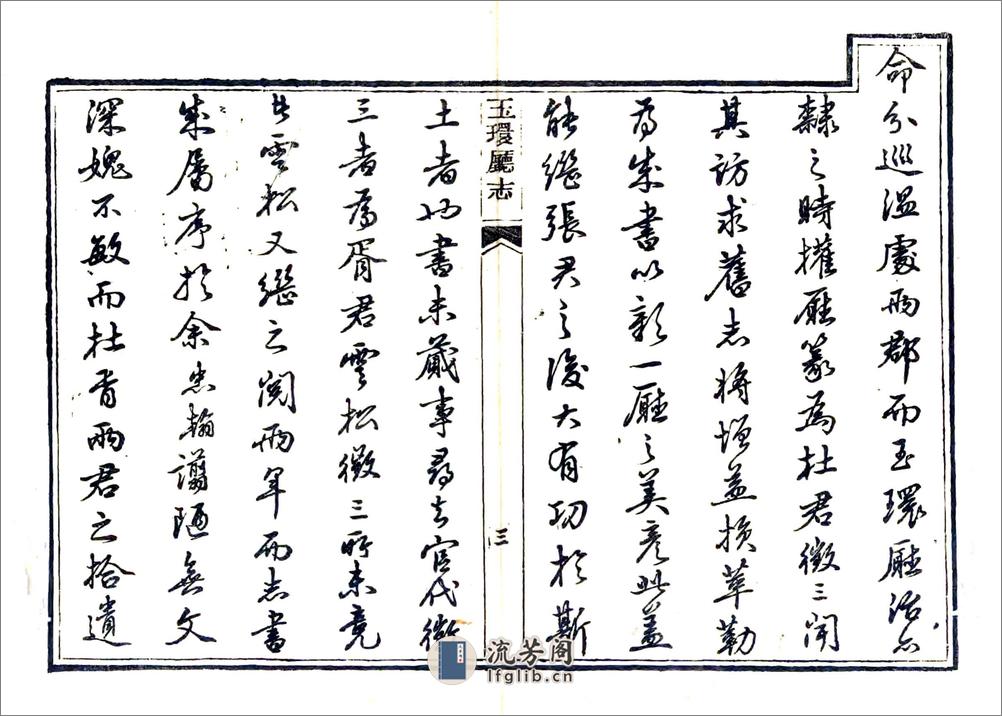 命分巡溫處兩郡而玉環廳治亦
隸之時權廳篆為杜君徵三聞
其訪求舊志將增益損草勒
為成書以彰一廳之美意此蓋
能繼張君之後大有功於斯
玉環廳志
三
土者也書未蕆事尋去官代徵
三者為胥君雲松徵三所未竟
者雲松又繼之閱兩年而志書
成屬序於余忠翰譾陋無文
深媿不敏而杜胥兩君之拾遺
流芳阁
lfglib.cn